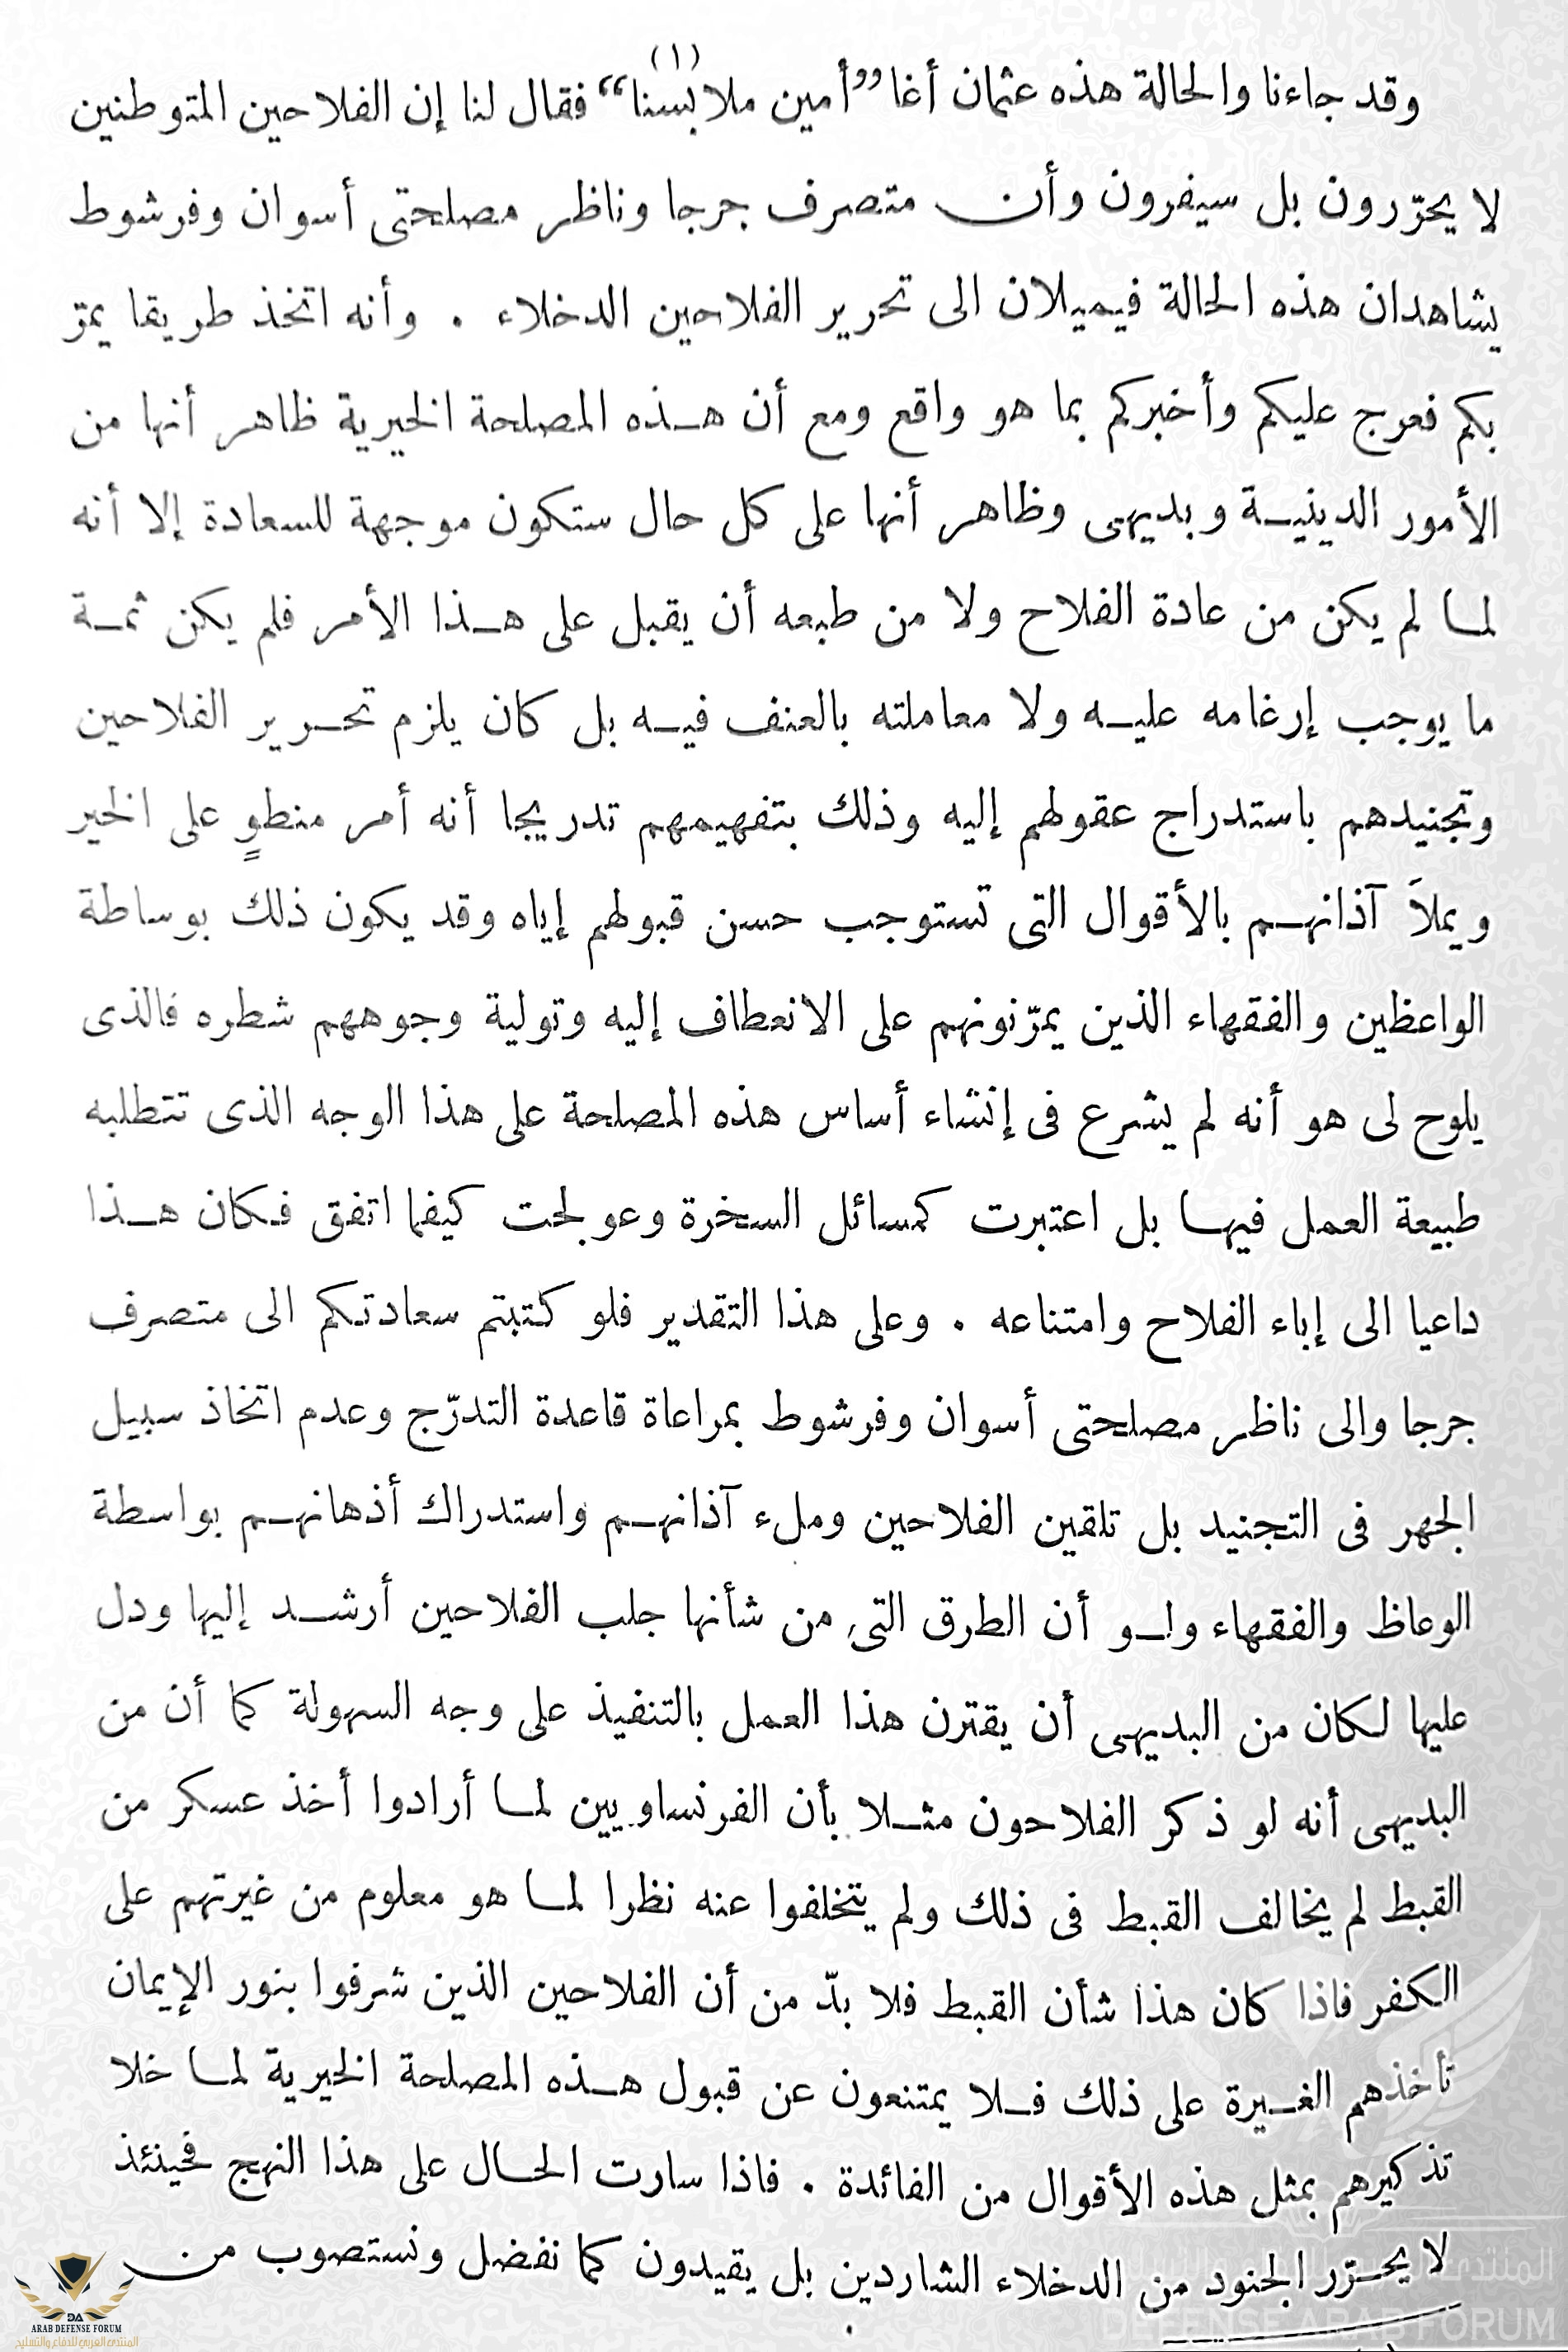 (١)
وقد جاءنا والحالة هذه عثمان أغا ”أمين ملابسنا“ فقال لنا إن الفلاحين المتوطنين
لا يحرّرون بل سيفرون وأن متصرف جرجا وناظر مصلحتى أسوان وفرشوط
يشاهدان هذه الحالة فيميلان الى تحرير الفلاحين الدخلاء . وأنه اتخذ طريقا يمرّ
بكم فعرج عليكم وأخبركم بما هو واقع ومع أن هـذه المصلحة الخيرية ظاهر أنها من
الأمور الدينيـة وبديهى وظاهر أنها على كل حال ستكون موجهة للسعادة إلا أنه
لمـا لم يكن من عادة الفلاح ولا من طبعه أن يقبل على هـذا الأمر فلم يكن ثمـة
ما يوجب إرغامه عليـه ولا معاملته بالعنف فيـه بل كان يلزم تحـرير الفلاحين
وتجنيدهم باستدراج عقولهم إليه وذلك بتفهيمهم تدريجا أنه أمر منطوٍ على الخير
ويملأَ آذانهـم بالأقوال التى تستوجب حسن قبولهم إياه وقد يكون ذلك بوساطة
الواعظين والفقهاء الذين يمرّنونهم على الانعطاف إليه وتولية وجوههم شطره فالذى
يلوح لى هو أنه لم يشرع فى إنشاء أساس هذه المصلحة على هذا الوجه الذى تتطلبه
طبيعة العمل فيهـا بل اعتبرت كمسائل السخرة وعولجت كيفما اتفق فكان هـذا
داعيا الى إباء الفلاح وامتناعه . وعلى هذا التقدير فلو كتبتم سعادتكم الى متصرف
جرجا والى ناظر مصلحتى أسوان وفرشوط بمراعاة قاعدة التدرّج وعدم اتخاذ سبيل
الجهر فى التجنيد بل تلقين الفلاحين وملء آذانهـم واستدراك أذهانهـم بواسطة
الوعاظ والفقهاء ولـو أن الطرق التى من شأنها جلب الفلاحين أرشـد إليها ودل
عليها لكان من البديهى أن يقترن هذا العمل بالتنفيذ على وجه السهولة كما أن من
البديهى أنه لو ذكر الفلاحون مثـلا بأن الفرنساويين لمـا أرادوا أخذ عسكر من
القبط لم يخالف القبط فى ذلك ولم يتخلفوا عنه نظرا لمـا هو معلوم من غيرتهم على
الكفر فاذا كان هذا شأن القبط فلا بدّ من أن الفلاحين الذين شرفوا بنور الإيمان
تأخذهم الغـيرة على ذلك فـلا يمتنعون عن قبول هـذه المصلحة الخيرية لمـا خلا
تذكيرهم بمثل هذه الأقوال من الفائدة . فاذا سارت الحـال على هذا النهج فحينئذ
لا يحـرّر الجنود من الدخلاء الشاردين بل يقيدون كما نفضل ونستصوب من
ARAB DEFENSE FORUM
المنتدى العربي للدفاع والتسليح
DEFENSE ARAB FORUM